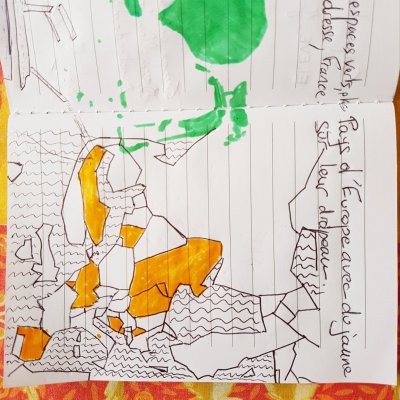 espaces verts,
France.
Pays d'Europe avec du jaune
sur leur drapeau.